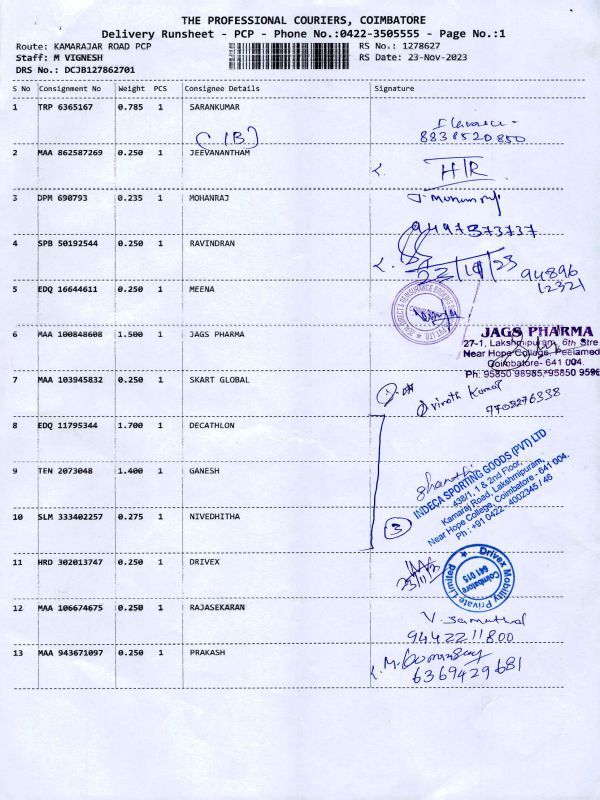 THE PROFESSIONAL COURIERS, COIMBATORE
Delivery Runsheet - PCP - Phone No.:0422-3505555 - Page No.:1
Route: KAMARAJAR ROAD PCP
Staff: M VIGNESH
DRS No.: DCJB127862701
RS No.: 1278627
RS Date: 23-Nov-2023
S No Consignment No Weight PCS Consignee Details Signature
1 TRP 6365167 0.785 1 SARANKUMAR
8838520850
(1B)
2 MAA 862587269 0.250 1 JEEVANANTHAM
H/R
3 DPM 690793 0.235 1 MOHANRAJ
9497373737
4 SPB 50192544 0.250 1 RAVINDRAN
23/11/23 94896
12321
5 EDQ 16644611 0.250 1 MEENA
6 MAA 100848608 1.500 1 JAGS PHARMA
JAGS PHARMA
27-1, Lakshmipuram, 6th Stre
Near Hope College, Peelamed
Coimbatore- 641 004.
Ph: 95850 98985,95850 959
7 MAA 103945832 0.250 1 SKART GLOBAL
Vinoth Kumar
7708276338
8 EDQ 11795344 1.700 1 DECATHLON
9 TEN 2073048 1.400 1 GANESH
bharathi
INDECA SPORTING GOODS (PVT) LTD
438/1, 1 & 2nd Floor,
Kamaraj Road, Lakshmipuram,
Near Hope College, Coimbatore - 641 004.
Ph : +91 0422 - 4002345 / 46
3
10 SLM 333402257 0.275 1 NIVEDHITHA
11 HRD 302013747 0.250 1 DRIVEX
23/11/23
Drivex Mobility Private Limited
Coimbatore
641 015
12 MAA 106674675 0.250 1 RAJASEKARAN
9442211800
13 MAA 943671097 0.250 1 PRAKASH
6369429681